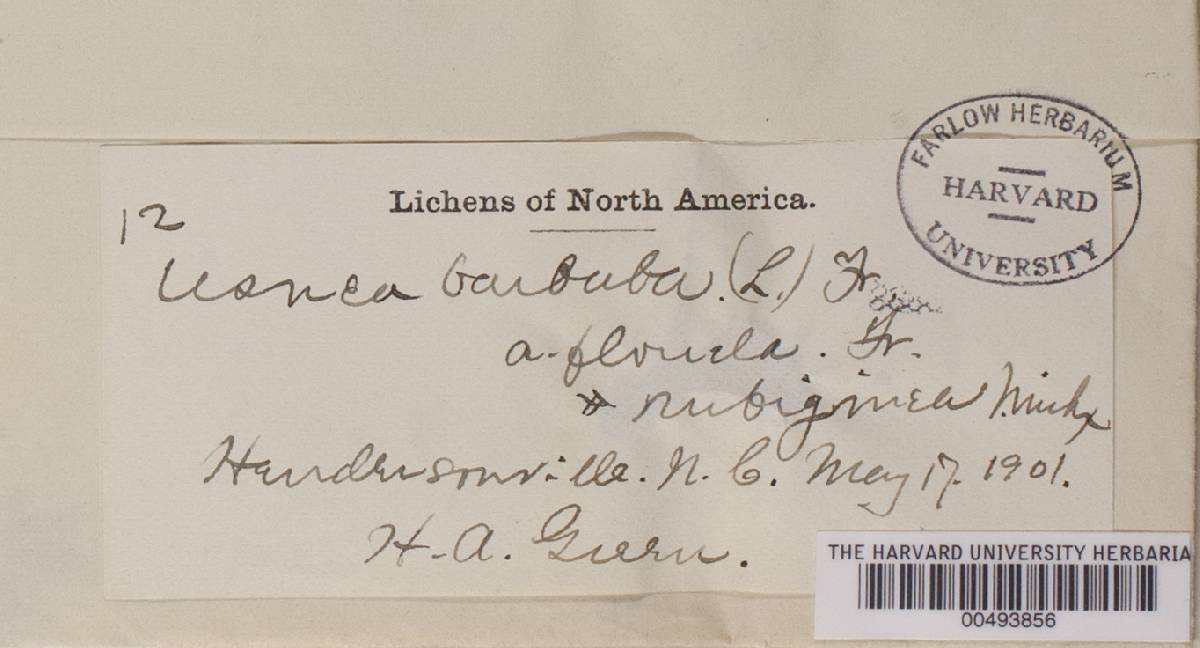 FARLOW HERBARIUM
HARVARD
UNIVERSITY
Lichens of North America.
12
Usnea barbata. (L.) Fr.
a. florida. Fr.
* rubiginea Michx
Hendersonville. N. C. May 17. 1901.
H. A. Green.
THE HARVARD UNIVERSITY HERBARIA
00493856